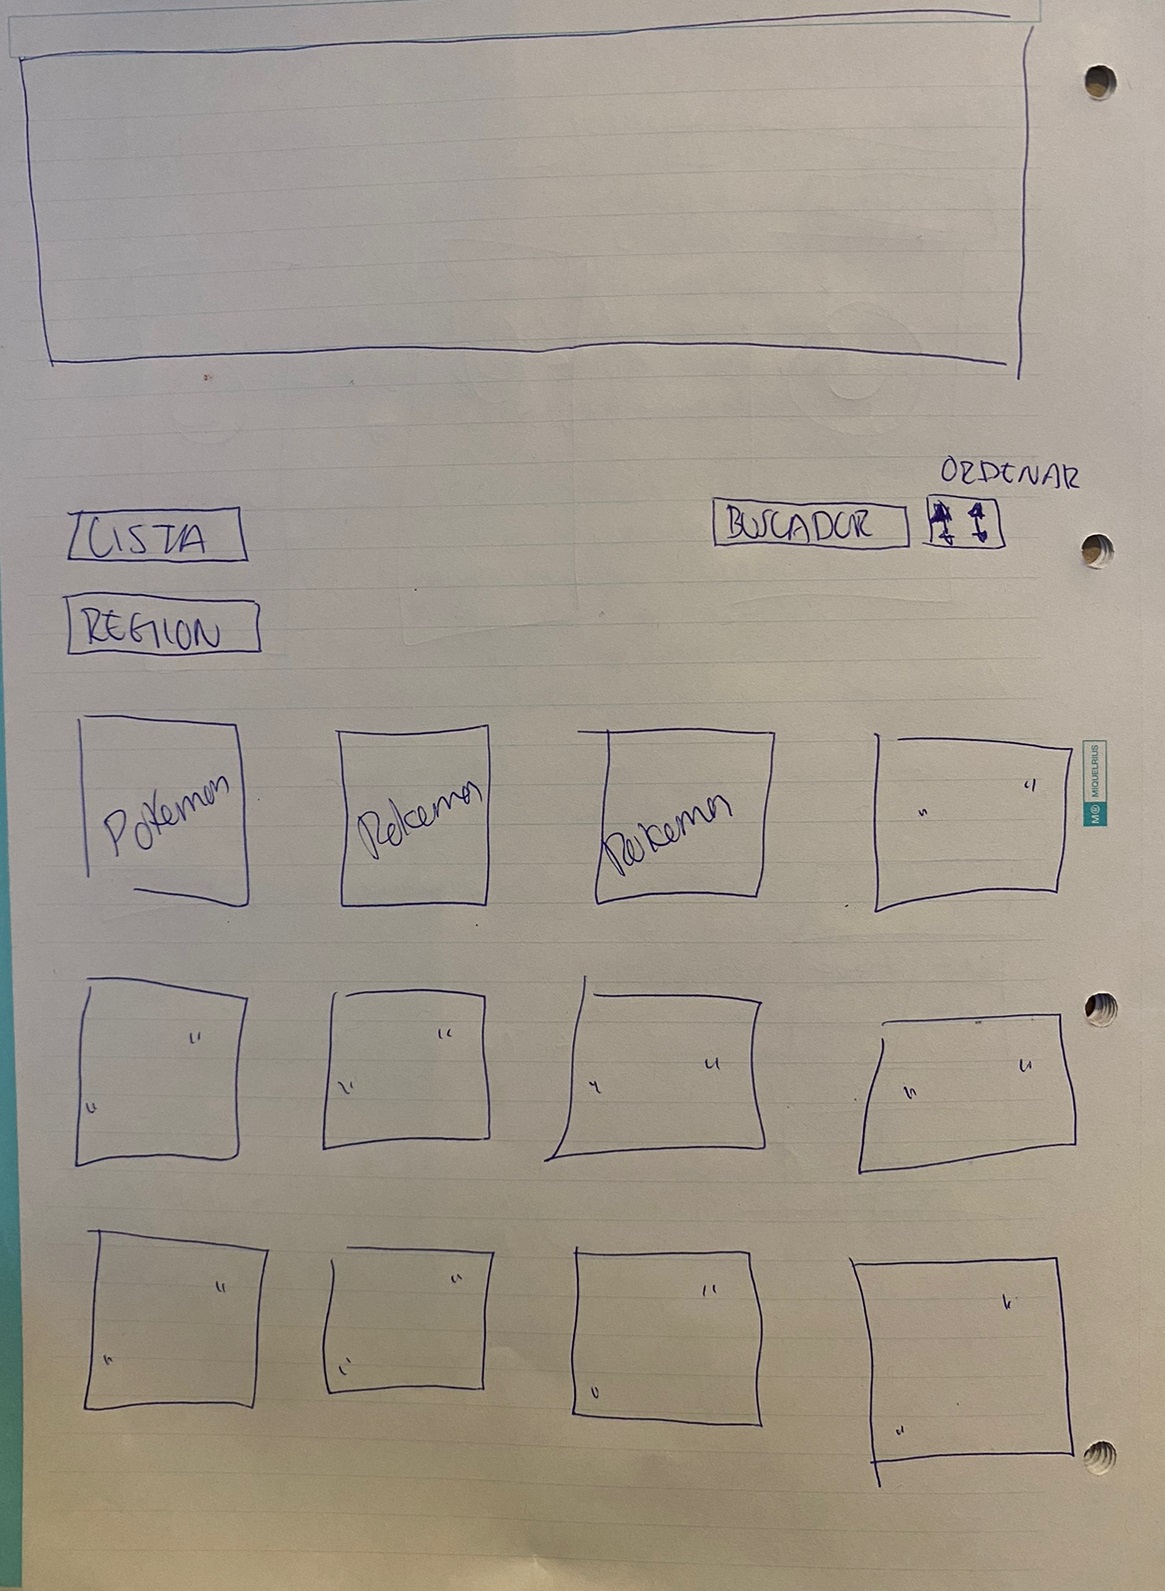 ORDENAR
LISTA
BUSCADOR
REGION
Pokemon
Pokemon
Pokemon
" "
M® MIQUELRIUS
" "
" "
" "
" "
" "
" "
" "
" "